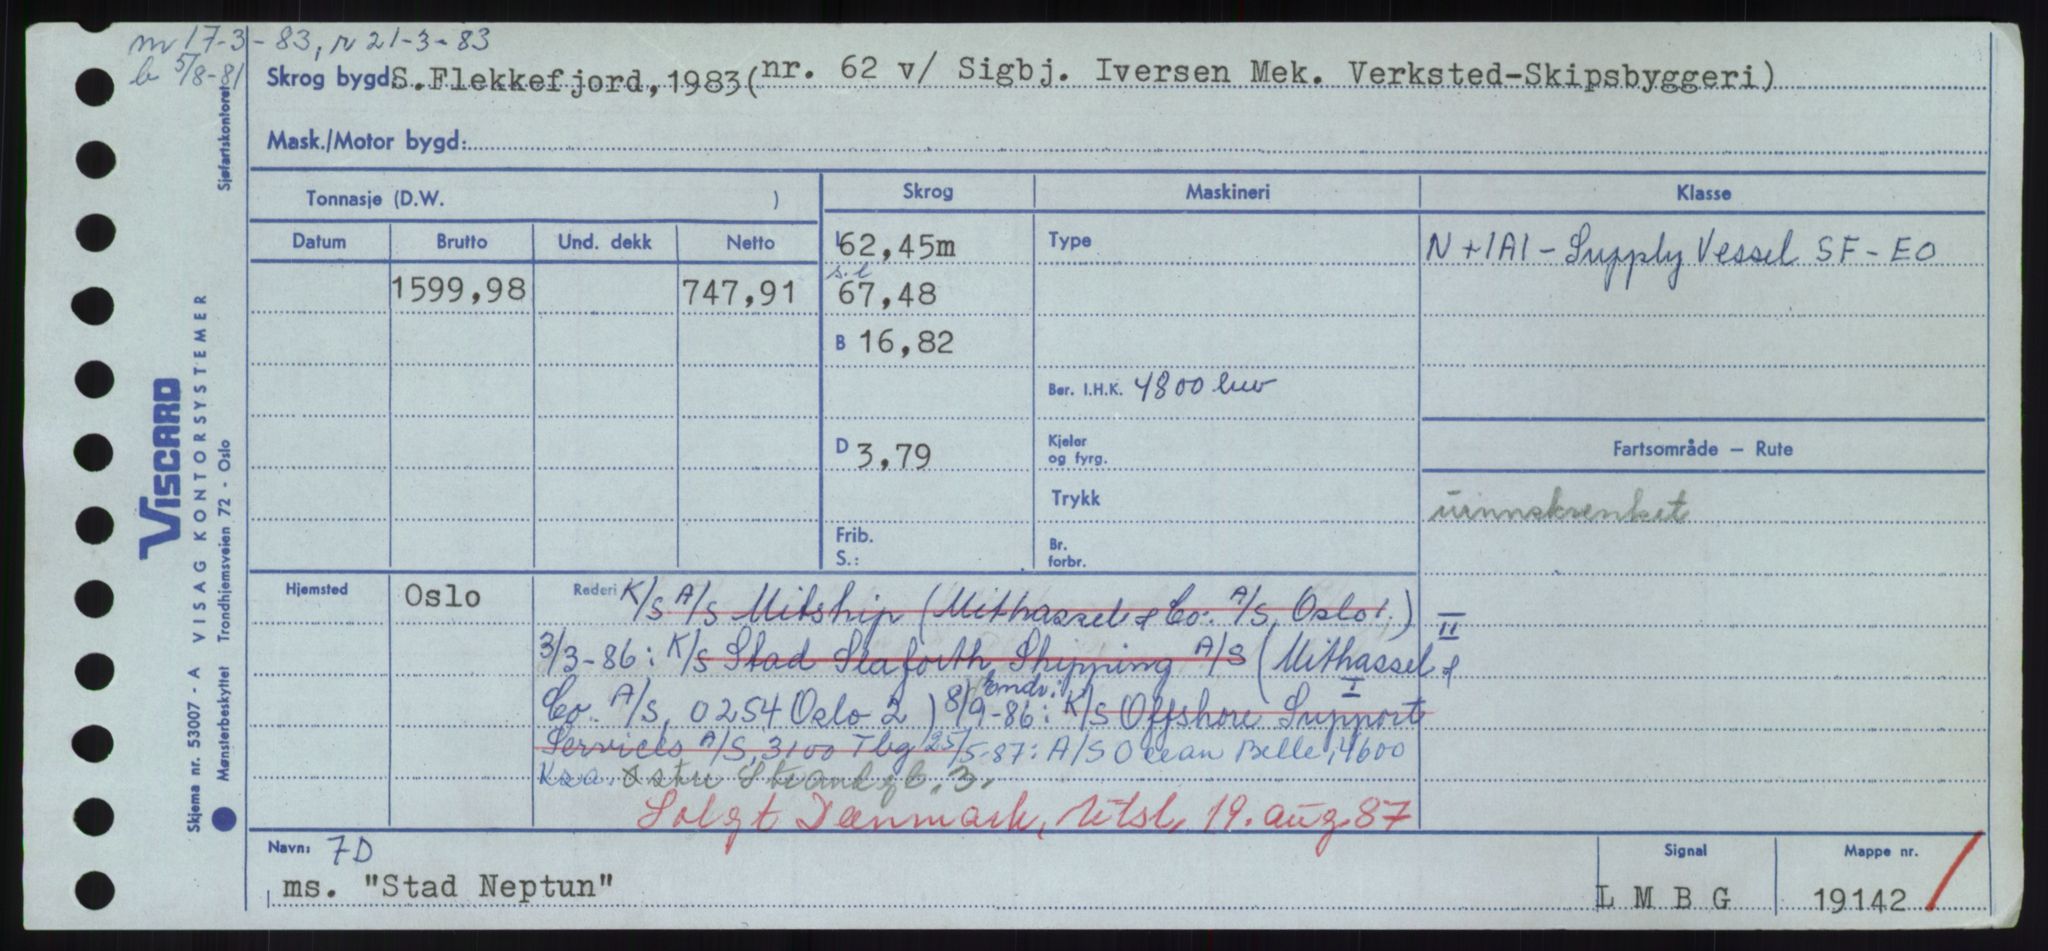 m 17-3-83, r 21-3-83
b 5/8-81
Skrog bygd: S.Flekkefjord, 1983(nr. 62 v/ Sigbj. Iversen Mek. Verksted-Skipsbyggeri)
Mask./Motor bygd:
Sjøfartskontoret
Tonnasje (D.W. )
Skrog
Maskineri
Klasse
Datum Brutto Und. dekk Netto
L 62,45m
Type
N +1A1 - Supply Vessel SF - EO
1599,98 747,91
s.l
67,48
B 16,82
Ber. I.H.K. 4800 bhv
D 3,79
Kjeler
og fyrg.
Fartsområde — Rute
Trykk
uinnskrenket
Frib.
S.:
Br.
forbr.
Hjemsted Oslo
Rederi K/S A/S Mitship (Mithassel & Co. A/S, Oslo 1.) II
3/3-86: K/S Stad Seaforth Shipping A/S (Mithassel &
Endr: I
Co. A/S, 0254 Oslo 2) 8/9-86: K/S Offshore Support
Services A/S, 3100 Tbg 25/5-87: A/S Ocean Belle, 4600
Krs.a. Østre Strandgt. 3.
Solgt Danmark, utsl. 19. aug. 87
Navn: 7D
ms. "Stad Neptun"
Signal
L M B G
Mappe nr.
19142
VISCARD
VISAG KONTORSYSTEMER
Skjema nr. 53007 - A
Mønsterbeskyttet Trondhjemsveien 72 - Oslo